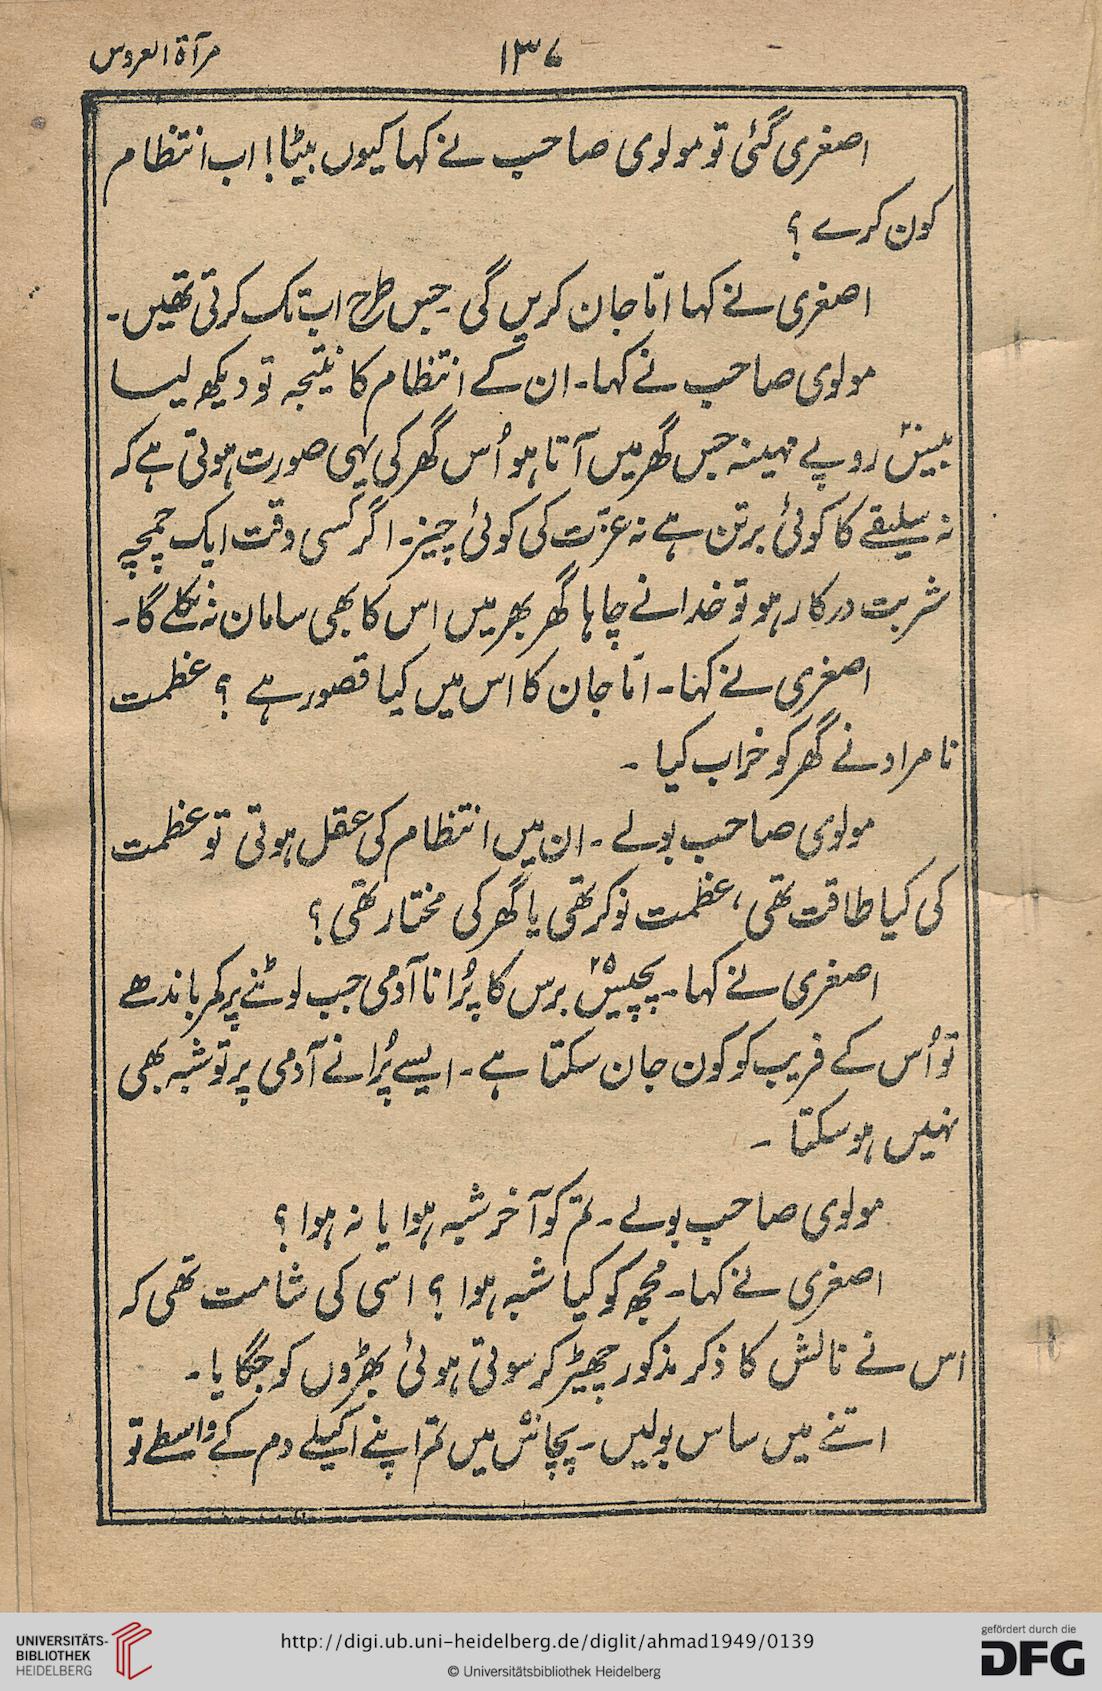 مرآۃ العروس
۱۳۷
اصغری گئی تو مولوی صاحب نے کہا کیوں بیٹا! اب انتظام
کون کرے؟
اصغری نے کہا اماّں جان کریں گی۔ جس طرح اب تک کرتی تھیں۔
مولوی صاحب نے کہا۔ ان کے انتظام کا نتیجہ تو دیکھ لیا
بیس روپے مہینہ جس گھر میں آتا ہو اُس گھر کی یہی صورت ہوتی ہے کہ
نہ سلیقے کا کوئی برتن ہے نہ عزّت کی کوئی چیز۔ اگر کسی وقت ایک چمچہ
شربت درکار ہو تو خدا نے چاہا گھر بھر میں اس کا بھی سامان نہ نکلے گا۔
اصغری نے کہا۔ اماّں جان کا اس میں کیا قصور ہے؟ عظمت
نامراد نے گھر کو خراب کیا۔
مولوی صاحب بولے۔ ان میں انتظام کی عقل ہوتی تو عظمت
کی کیا طاقت تھی، عظمت نوکر تھی یا گھر کی مختار تھی؟
اصغری نے کہا۔ پچیس ۲۵ برس کا پُرانا آدمی جب لوٹنے پر کمر باندھے
تو اُس کے فریب کو کون جان سکتا ہے۔ ایسے پُرانے آدمی پر تو شبہ بھی
نہیں ہو سکتا۔
مولوی صاحب بولے۔ تم کو آخر شبہ ہوا یا نہ ہوا؟
اصغری نے کہا۔ مجھ کو کیا شبہ ہوا؟ اسی کی شامت تھی کہ
اس نے نالش کا ذکر مذکور چھیڑ کر سوتی ہوئی بھڑوں کو جگایا۔
اتنے میں ساس بولیں۔ پچاس میں تم اپنے اکیلے دم کے واسطے تو
UNIVERSITÄTS-
BIBLIOTHEK
HEIDELBERG
http://digi.ub.uni-heidelberg.de/diglit/ahmad1949/0139
© Universitätsbibliothek Heidelberg
gefördert durch die
DFG